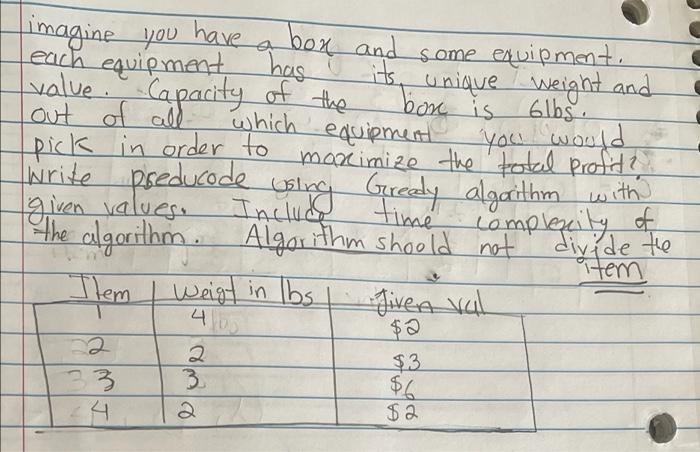 imagine you have a box and some equipment.
each equipment has its unique weight and
value. Capacity of the box is 6lbs.
out of all which equipment you would
pick in order to maximize the total profit?
Write pseducode using Greedy algorithm with
given values. Include time complexity of
the algorithm. Algorithm shoold not divide the
item
Item weigt in lbs given val
1 4 $2
2 2 $3
3 3 $6
4 2 $2